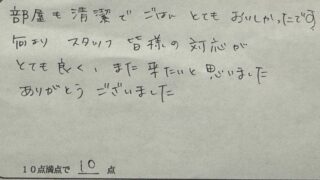 部屋も清潔で ごはん とても おいしかったです。
何より スタッフ 皆様の 対応が
とても良く、また来たいと思いました
ありがとう ございました
10点満点で 10 点